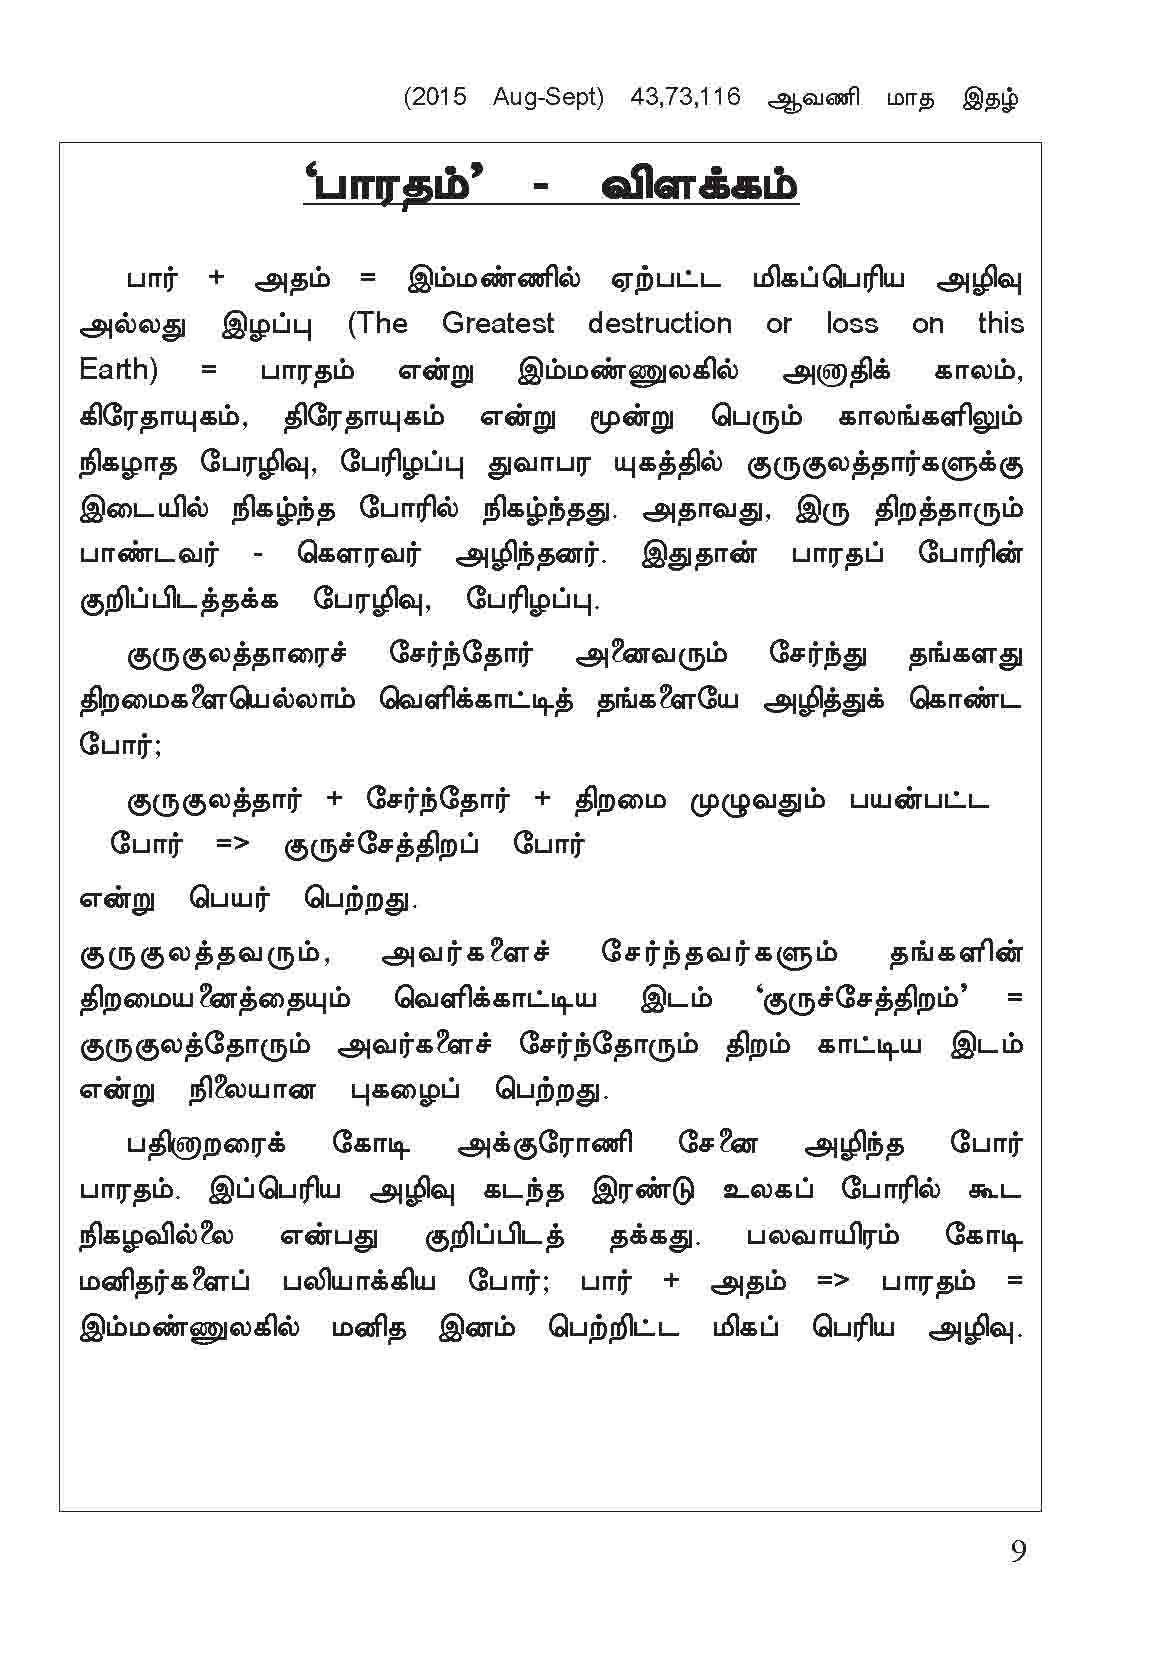 (2015 Aug-Sept) 43,73,116 ஆவணி மாத இதழ்
‘பாரதம்’ - விளக்கம்
பார் + அதம் = இம்மண்ணில் ஏற்பட்ட மிகப்பெரிய அழிவு
அல்லது இழப்பு (The Greatest destruction or loss on this
Earth) = பாரதம் என்று இம்மண்ணுலகில் அனாதிக் காலம்,
கிரேதாயுகம், திரேதாயுகம் என்று மூன்று பெரும் காலங்களிலும்
நிகழாத பேரழிவு, பேரிழப்பு துவாபர யுகத்தில் குருகுலத்தார்களுக்கு
இடையில் நிகழ்ந்த போரில் நிகழ்ந்தது. அதாவது, இரு திறத்தாரும்
பாண்டவர் - கௌரவர் அழிந்தனர். இதுதான் பாரதப் போரின்
குறிப்பிடத்தக்க பேரழிவு, பேரிழப்பு.
குருகுலத்தாரைச் சேர்ந்தோர் அனைவரும் சேர்ந்து தங்களது
திறமைகளையெல்லாம் வெளிக்காட்டித் தங்களையே அழித்துக் கொண்ட
போர்;
குருகுலத்தார் + சேர்ந்தோர் + திறமை முழுவதும் பயன்பட்ட
போர் => குருச்சேத்திறப் போர்
என்று பெயர் பெற்றது.
குருகுலத்தவரும், அவர்களைச் சேர்ந்தவர்களும் தங்களின்
திறமையனைத்தையும் வெளிக்காட்டிய இடம் ‘குருச்சேத்திறம்’ =
குருகுலத்தோரும் அவர்களைச் சேர்ந்தோரும் திறம் காட்டிய இடம்
என்று நிலையான புகழைப் பெற்றது.
பதினாறரைக் கோடி அக்குரோணி சேனை அழிந்த போர்
பாரதம். இப்பெரிய அழிவு கடந்த இரண்டு உலகப் போரில் கூட
நிகழவில்லை என்பது குறிப்பிடத் தக்கது. பலவாயிரம் கோடி
மனிதர்களைப் பலியாக்கிய போர்; பார் + அதம் => பாரதம் =
இம்மண்ணுலகில் மனித இனம் பெற்றிட்ட மிகப் பெரிய அழிவு.
9